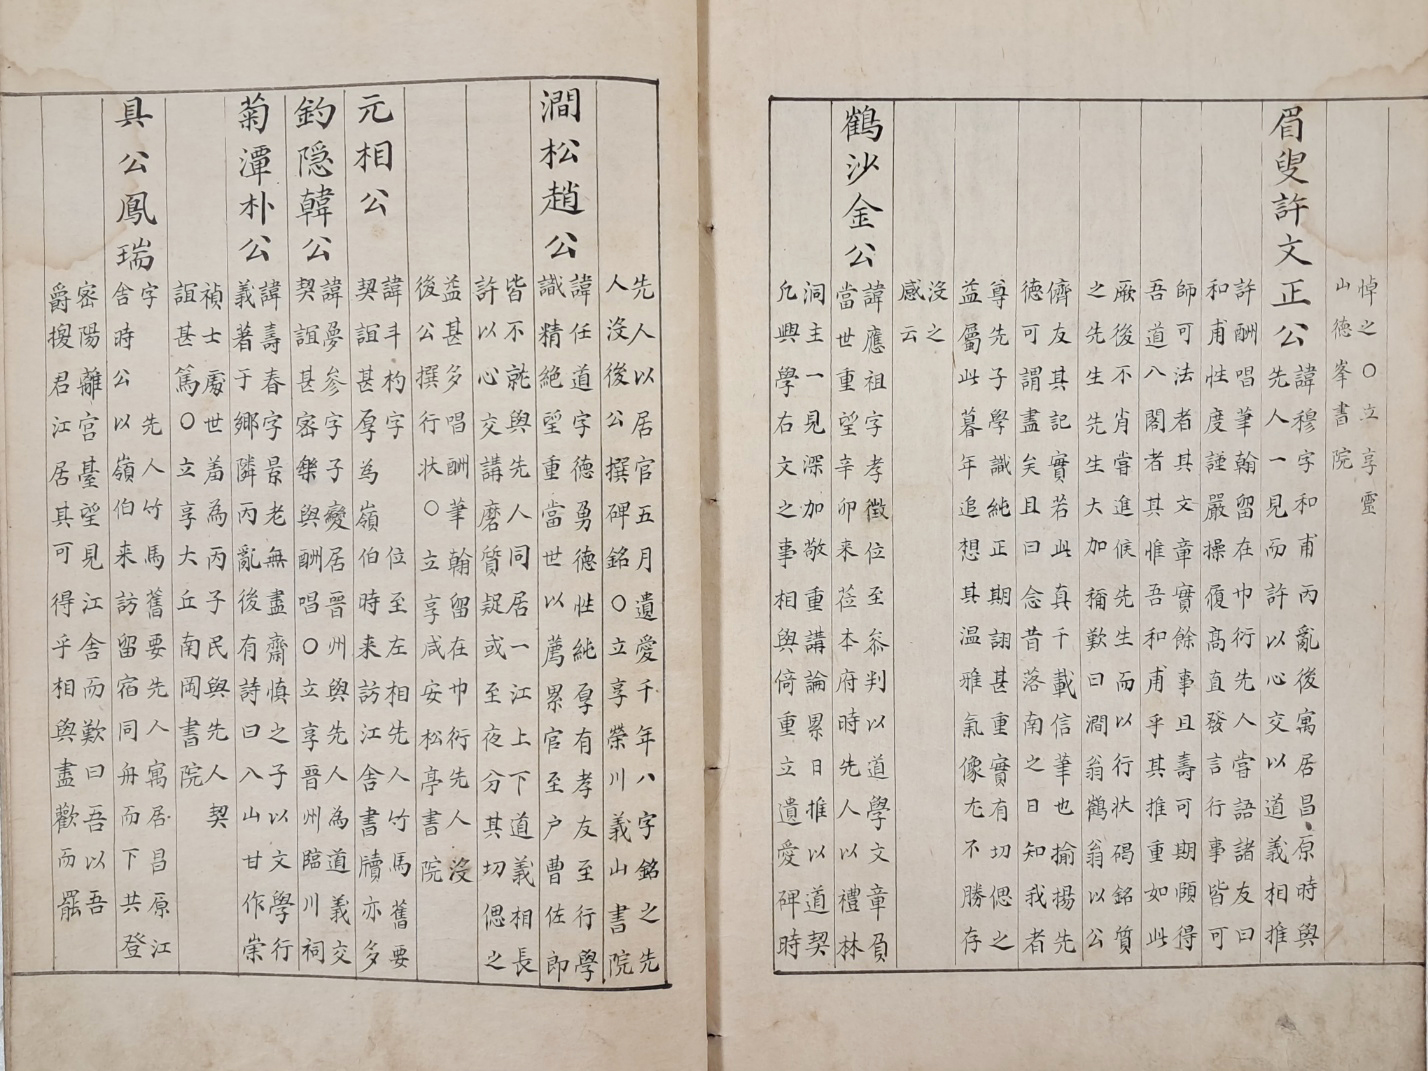 悼之〇立享靈
山德峯書院
眉叟許文正公
諱穆字和甫丙亂後寓居昌原時與
先人一見而許以心交以道義相推
許酬唱筆翰留在巾衍先人嘗語諸友曰
和甫性度謹嚴操履高直發言行事皆可
師可法者其文章實餘事且壽可期頤得
吾道八閣者其惟吾和甫乎其推重如此
厥後不肖嘗進候先生而以行狀碣銘質
之先生先生大加稱歎曰澗翁鶴翁以公
儕友其記實若此真千載信筆也揄揚先
德可謂盡矣且曰念昔落南之日知我者
尊先子學識純正期詡甚重實有切偲之
益屬此暮年追想其溫雅氣像尢不勝存
沒之
感云
鶴沙金公
諱應祖字孝徵位至叅判以道學文章負
當世重望辛卯來莅本府時先人以禮林
洞主一見深加敬重講論累日推以道契
凢興學右文之事相與倚重立遺愛碑時
先人以居官五月遺愛千年八字銘之先
人沒後公撰碑銘〇立享榮川義山書院
澗松趙公
諱任道字德勇德性純厚有孝友至行學
識精絶望重當世以薦累官至户曹佐郎
皆不就與先人同居一江上下道義相長
許以心交講磨質疑或至夜分其切偲之
益甚多唱酬筆翰留在巾衍先人沒
後公撰行狀〇立享咸安松亭書院
元相公
諱斗杓字　位至左相先人竹馬舊要
契誼甚厚為嶺伯時来訪江舍書牘亦多
釣隱韓公
諱夢參字子變居晋州與先人為道義交
契誼甚密樂與酬唱〇立享晋州臨川祠
菊潭朴公
諱壽春字景老無盡齋慎之子以文學行
義著于鄉隣丙亂後有詩曰入山甘作崇
禎士處世羞為丙子民與先人契
誼甚篤〇立享大丘南岡書院
具公鳳瑞
字　先人竹馬舊要先人寓居昌原江
舍時公以嶺伯来訪留宿同舟而下共登
密陽離宫䑓望見江舍而歎曰吾以吾
爵揬君江居其可得乎相與盡歡而罷